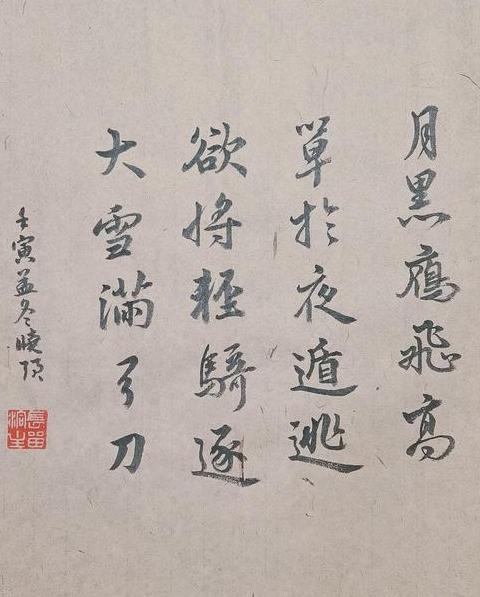 月黑鴈飛高
單於夜遁逃
欲將輕騎逐
大雪滿弓刀
壬寅孟冬曉